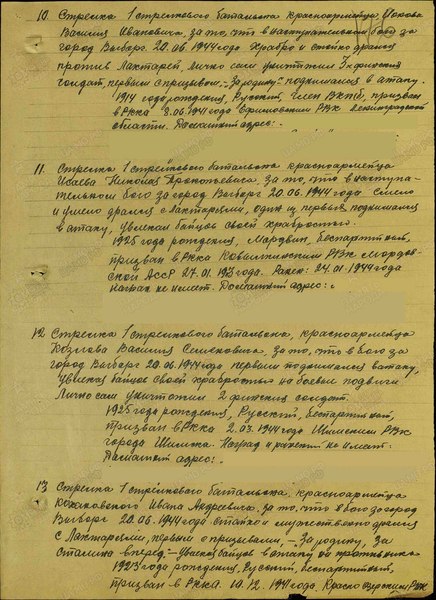 10. Стрелка 1 стрелкового батальона красноармейца
Василия Ивановича, за то, что в наступательном бою за
город Выборг 20.06.1944 года храбро и стойко дрался
против Лахтарей. Лично сам уничтожил 3х финских
солдат, первым с призывом, - "За родину" поднимался в атаку.
1914 года рождения, Русский, Член ВКПб, призван
в РККА 8.06.1941 года РВК Ленинградской
области. Домашний адрес:
11. Стрелка 1 стрелкового батальона красноармейца
Исаева Николая Прокопьевича, за то, что в наступа-
тельном бою за город Выборг 20.06.1944 года Смело
и умело дрался с Лахтарями, один из первых поднимался
в атаку, увлекая бойцов своей храбростью.
1925 года рождения, Мордвин, Беспартийный,
призван в РККА Ковылкинским РВК мордов-
ской АССР 27.01.193 года. Ранен: 24.01.1944 года
Наград не имеет. Домашний адрес:
12 Стрелка 1 стрелкового батальона, красноармейца
Козлова Василия Семеновича, за то, что в бою за
город Выборг 20.06.1944 года первым поднимался в атаку,
Увлекая бойцов своей храбростью на боевые подвиги
Лично сам уничтожил 2 финских солдат.
1925 года рождения, Русский, Беспартийный,
призван в РККА 2.03.1944 года РВК
города Наград и ранений не имеет.
Домашний адрес:
13 Стрелка 1 стрелкового батальона красноармейца
Кохановского Ивана Андреевича за то, что в бою за город
Выборг 20.06.1944 года стойко и мужественно дрался
с Лахтарями, первым с призывами, - За родину, за
Сталина вперед, - увлекая бойцов в атаку на противника
1923 года рождения, Русский, Беспартийный,
призван в РККА. 10.12.1941 года. РВК